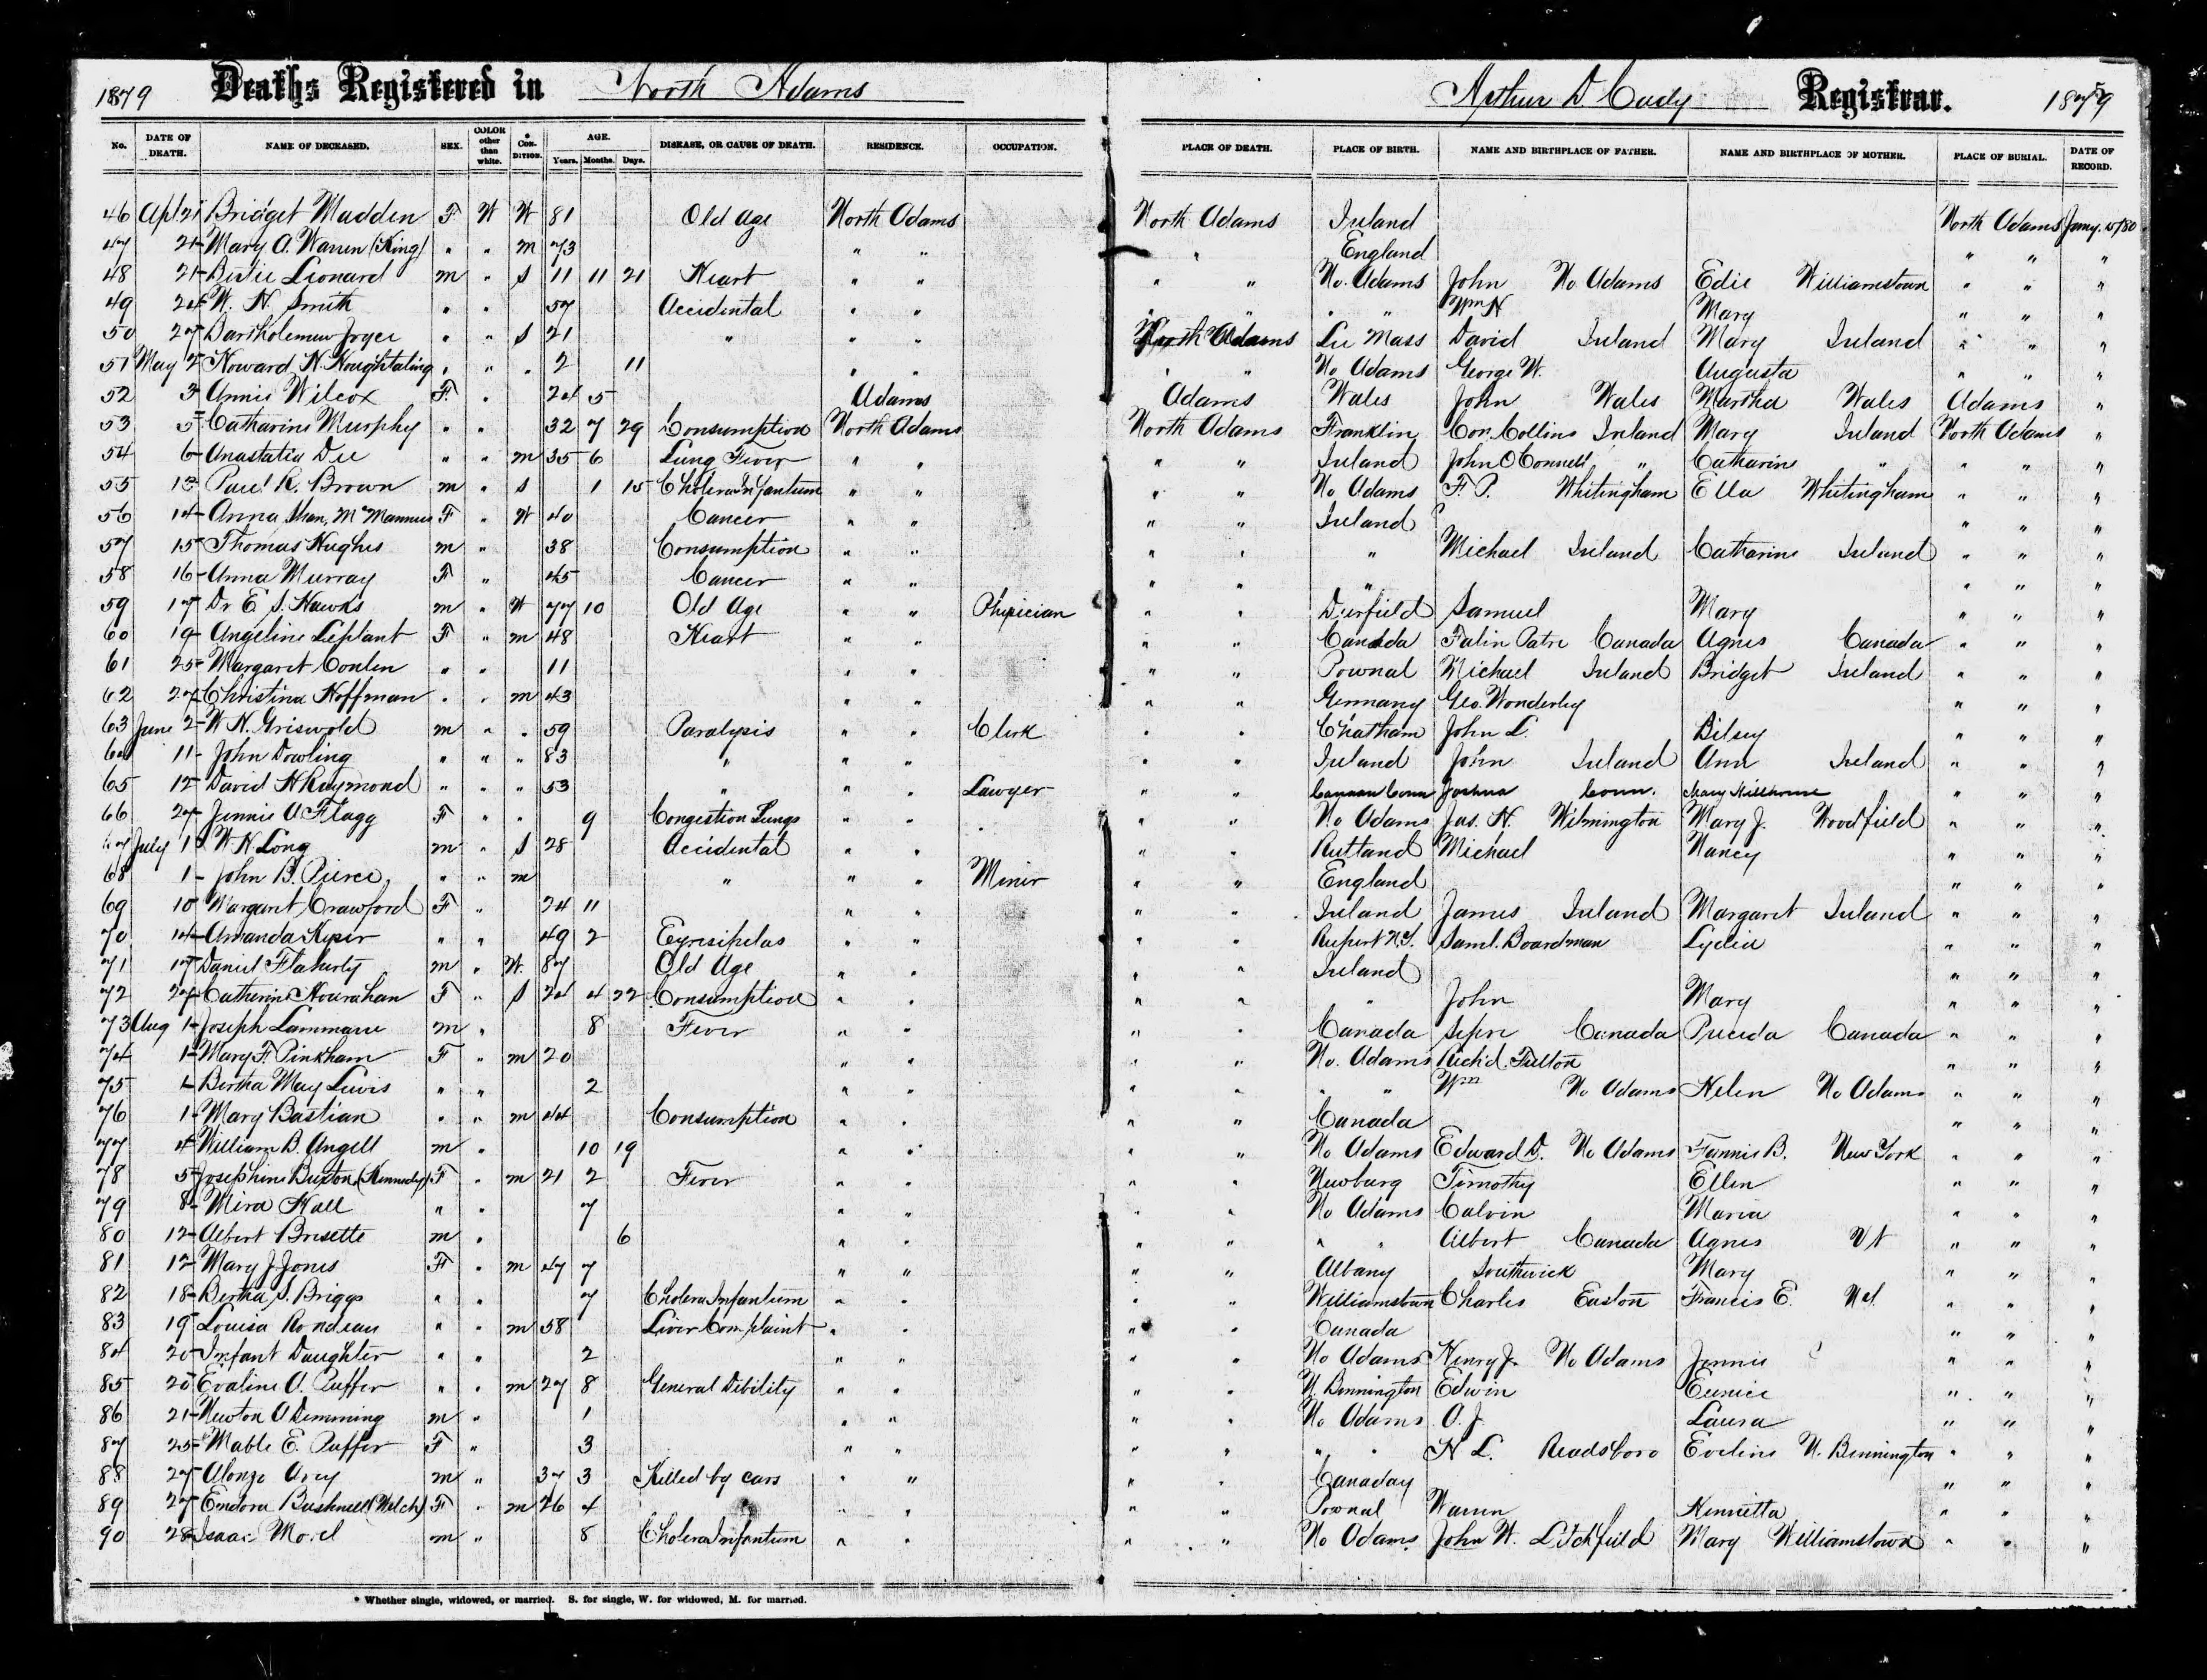 1879 Deaths Registered in North Adams Arthur D Cady Registrar. 1879
No. DATE OF DEATH. NAME OF DECEASED. SEX. COLOR other than white. * CON-DITION. AGE. Years. Months. Days. DISEASE, OR CAUSE OF DEATH. RESIDENCE. OCCUPATION. PLACE OF DEATH. PLACE OF BIRTH. NAME AND BIRTHPLACE OF FATHER. NAME AND BIRTHPLACE OF MOTHER. PLACE OF BURIAL. DATE OF RECORD.
46 Apl 21 Bridget Madden F W W 81 Old Age North Adams North Adams Ireland North Adams Jany. 15/80
47 21 Mary A. Warren (King) " " m 73 " " " England " " "
48 21 Leonard m " S 11 11 21 Heart " " " " No. Adams John No Adams Edie Williamstown " " "
49 24 W. H. Smith " " 57 Accidental " " " " " " Wm H Mary " " "
50 27 Bartholemew Joyce " " S 21 " " " North Adams Lee Mass David Ireland Mary Ireland " " "
51 May 2 Howard H. Houghtaling " " " 2 11 " " " " No Adams George W. Augusta " " "
52 3 Annie Wilcox F. " 24 5 Adams Adams Wales John Wales Martha Wales Adams "
53 5 Catharine Murphy " " 32 7 29 Consumption North Adams North Adams Franklin Cor. Collins Ireland Mary Ireland North Adams "
54 6 Anastatia Dee " " m 35 6 Lung Fever " " " " Ireland John O Connell " Catharine " " " "
55 13 Paul R. Brown m " S 1 15 Cholera Infantum " " " " No Adams F. P. Whitingham Ella Whitingham " " "
56 14 Anna Shan, McMannus F " W 40 Cancer " " " " Ireland ? " " "
57 15 Thomas Hughes m " 38 Consumption " " " " " Michael Ireland Catharine Ireland " " "
58 16 Anna Murray F " 45 Cancer " " " " " " " "
59 17 Dr E S. Hawks m " W 77 10 Old Age " " Physician " " Deerfield Samuel Mary " " "
60 19 Angeline Leplant F " m 48 Heart " " " " Canada Falin Patre Canada Agnes Canada " " "
61 25 Margaret Conlen " " 11 " " " " Pownal Michael Ireland Bridget Ireland " " "
62 27 Christina Hoffman " " m 43 " " " " Germany Geo. Wonderley " " "
63 June 2 W H. Griswold m " " 59 Paralysis " " Clerk " " Chatham John L. Bitsey " " "
64 11 John Dowling " " " 83 " " " " " Ireland John Ireland Ann Ireland " " "
65 12 David H Raymond " " " 53 " " " Lawyer " " Canaan Conn Joshua Conn. Mary " " "
66 27 Jennie A Flagg F " " 9 Congestion Lungs " " " " No Adams Jas. H. Wilmington Mary J. Woodfield " " "
67 July 1 W. H. Long m " S 28 Accidental " " " " Rutland Michael Nancy " " "
68 1 John B. Pierce " " m " " " Miner " " England " " "
69 10 Margaret Crawford F " 24 11 " " " " Ireland James Ireland Margaret Ireland " " "
70 14 Amanda Kyser " " 49 2 Eyresipelas " " " " Rupert N.Y. Saml. Boardman Lydia " " "
71 17 Daniel Flaherty m " W. 87 Old Age " " " " Ireland " " "
72 27 Catherine Hourahan F " S 24 4 22 Consumption " " " " " John Mary " " "
73 Aug 1 Joseph Lammarie m " 8 Fever " " " " Canada Canada Canada " " "
74 1 Mary F Pinkham F " m 20 " " " " No. Adams Rich'd. Fulton " " "
75 1 Bertha May Lewis " " 2 " " " " " " Wm No Adams Helen No Adams " " "
76 1 Mary Bastian " " m 44 Consumption " " " " Canada " " "
77 4 William B. Angell m " 10 19 " " " " No Adams Edward D. No Adams Fannie B. New York " " "
78 5 Josephine Buxton (Kennedy) F " m 21 2 Fever " " " " Newburg Timothy Ellen " " "
79 8 Mira Hall " " 7 " " " " No Adams Calvin Maria " " "
80 12 Albert Brisette m " 6 " " " " " " Albert Canada Agnes Vt " " "
81 12 Mary J Jones F " m 47 7 " " " " Albany Southwick Mary " " "
82 18 Bertha S. Briggs " " 7 Cholera Infantum " " " " Williamstown Charles Easton Francis E. " " "
83 19 Louisa Rondeau " " m 58 Liver Complaint " " " " Canada " " "
84 20 Infant Daughter " " 2 " " " " No Adams Henry J. No Adams Jennie " " "
85 20 Evaline A. Puffer " " m 27 8 General Dibility " " " " N. Bennington Edwin Eunice " " "
86 21 Newton A Demming m " 1 " " " " No Adams A. J. Laura " " "
87 25 Mable E. Puffer F " 3 " " " " " " H L. Readsboro Eveline N. Bennington " " "
88 27 Alonzo Avey m " 37 3 Killed by cars " " " " Canaday " " "
89 27 Endora Bushnell (Welch) F " m 26 4 " " " " Pownal Warren Henrietta " " "
90 28 Isaac m " 8 Cholera Infantum " " " " No Adams John W. Litchfield Mary Williamstown " " "
* Whether single, widowed, or married. S. for single, W. for widowed, M. for married.